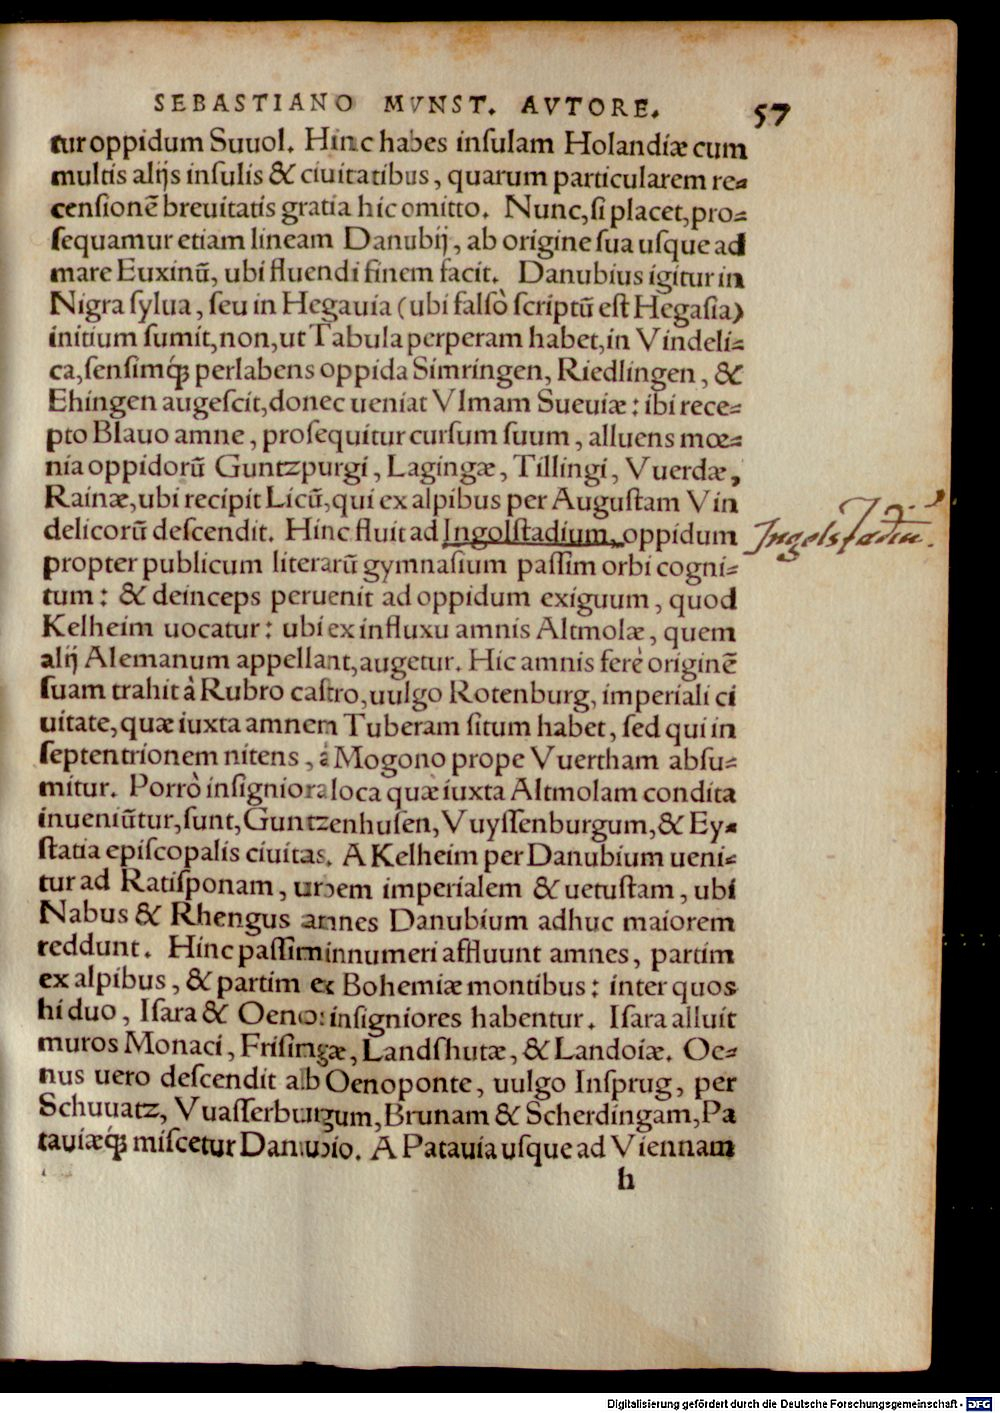 SEBASTIANO MVNST. AVTORE. 57
tur oppidum Suuol. Hinc habes inſulam Holandiæ cum
multis alijs inſulis & ciuitatibus, quarum particularem re-
cenſionē breuitatis gratia hic omitto. Nunc, ſi placet, pro-
ſequamur etiam lineam Danubij, ab origine ſua uſque ad
mare Euxinū, ubi fluendi finem facit. Danubius igitur in
Nigra ſylua, ſeu in Hegauia (ubi falſò ſcriptū eſt Hegaſia)
initium ſumit, non, ut Tabula perperam habet, in Vindeli-
ca, ſenſimq́ꝫ perlabens oppida Simringen, Riedlingen, &
Ehingen augeſcit, donec ueniat Vlmam Sueuiæ: ibi rece-
pto Blauo amne, proſequitur curſum ſuum, alluens mœ-
nia oppidorū Guntzpurgi, Lagingæ, Tillingi, Vuerdæ,
Rainæ, ubi recipit Licū, qui ex alpibus per Auguſtam Vin
delicorū deſcendit. Hinc fluit ad Ingolſtadium, oppidum
Ingolstadiū.
propter publicum literarū gymnaſium paſſim orbi cogni-
tum: & deinceps peruenit ad oppidum exiguum, quod
Kelheim uocatur: ubi ex influxu amnis Altmolæ, quem
alij Alemanum appellant, augetur. Hic amnis ferè originē
ſuam trahit à Rubro caſtro, uulgo Rotenburg, imperiali ci
uitate, quæ iuxta amnem Tuberam ſitum habet, ſed qui in
ſeptentrionem nitens, à Mogono prope Vuertham abſu-
mitur. Porrò inſigniora loca quæ iuxta Altmolam condita
inueniūtur, ſunt, Guntzenhuſen, Vuyſſenburgum, & Ey-
ſtatia epiſcopalis ciuitas. A Kelheim per Danubium ueni-
tur ad Ratiſponam, urbem imperialem & uetuſtam, ubi
Nabus & Rhengus amnes Danubium adhuc maiorem
reddunt. Hinc paſſim innumeri affluunt amnes, partim
ex alpibus, & partim ex Bohemiæ montibus: inter quos
hi duo, Iſara & Oenus inſigniores habentur. Iſara alluit
muros Monaci, Friſingæ, Landſhutæ, & Landoiæ. Oe-
nus uero deſcendit ab Oenoponte, uulgo Inſprug, per
Schuuatz, Vuaſſerburgum, Brunam & Scherdingam, Pa
tauiæq́ꝫ miſcetur Danubio. A Patauia uſque ad Viennam
h
Digitalisierung gefördert durch die Deutsche Forschungsgemeinschaft - DFG